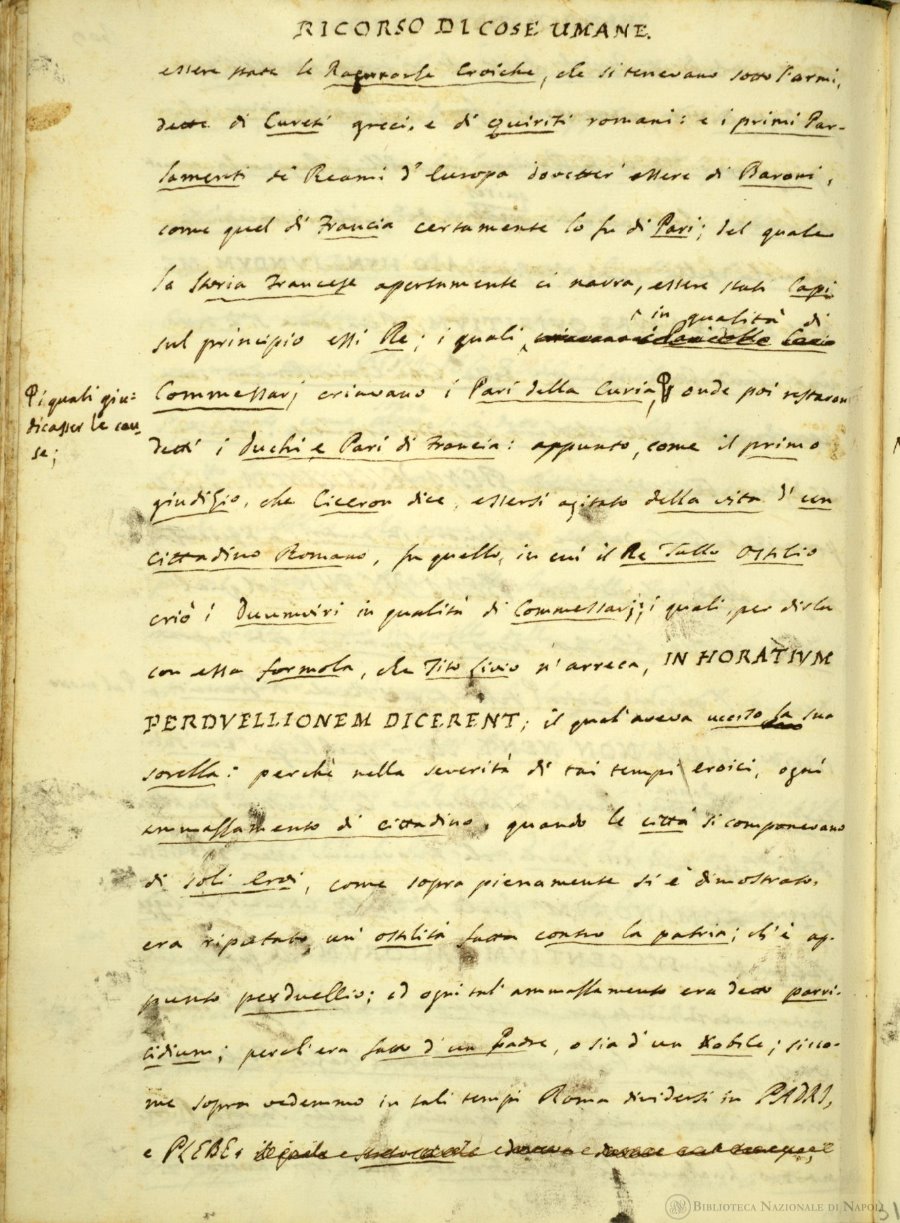 RICORSO DI COSE UMANE.
essere state le Ragunanze Eroiche, che si tenevano sotto l'armi,
dette di Cureti greci, e di quiriti romani: e i primi Par-
lamenti de' Reami d' Europa dovetter' essere di Baroni,
come quel di Francia certamente lo fu di Pari; del quale
la Storia Francese apertamente ci narra, essere stati Capi
in qualità di
sul principio essi Re; i quali,
Commessarj criavano i Pari della Curia, onde poi restaron
Pi quali giu-
dicasser le cau-
se;
detti i Duchi e Pari di Francia: appunto, come il primo
giudizio, che Ciceron dice, essersi agitato della vita d' un
cittadino Romano, fu quello, in cui il Re Tullo Ostilio
criò i Duumviri in qualità di Commessarj; i quali, per dirla
con essa formola, che Tito Livio n' arreca, IN HORATIVM
PERDVELLIONEM DICERENT; il qual' aveva ucciso la sua
sorella: perchè nella severità di tai tempi eroici, ogni
ammassamento di cittadino, quando le città si componevano
di soli Eroi, come sopra pienamente si è dimostrato,
era riputato un' ostilità fatta contro la patria; ch' è ap-
punto perduellio; ed ogni tal' ammassamento era detto parri-
cidium; perch' era fatto d' un Padre, o sia d' un Nobile; sicco-
me sopra vedemmo in tali tempi Roma dividersi in PADRI,
e PLEBE.
BIBLIOTECA NAZIONALE DI NAPOLI